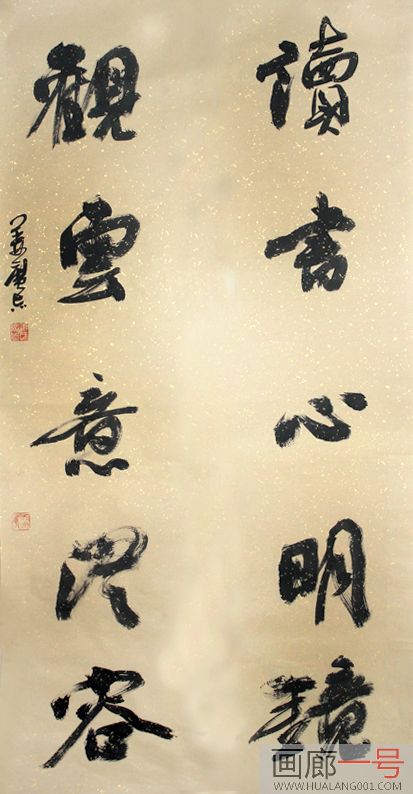 讀書心明鏡
觀雲意從容
画廊一号
WWW.HUALANG001.COM